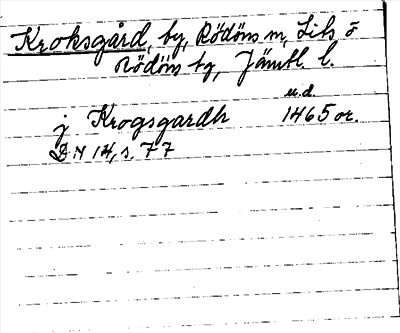 Kroksgård, by, Rödöns sn, Lits ö
Rödöns tg, Jämtl. l.
u.d.
j Krogsgardh 1465 or.
DN 14, s. 77